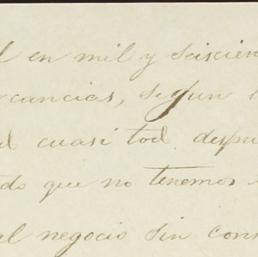 l en mil y seiscien
rcancias, segun l
d cuasi tod despu
do que no tenemos
al negocio sin con